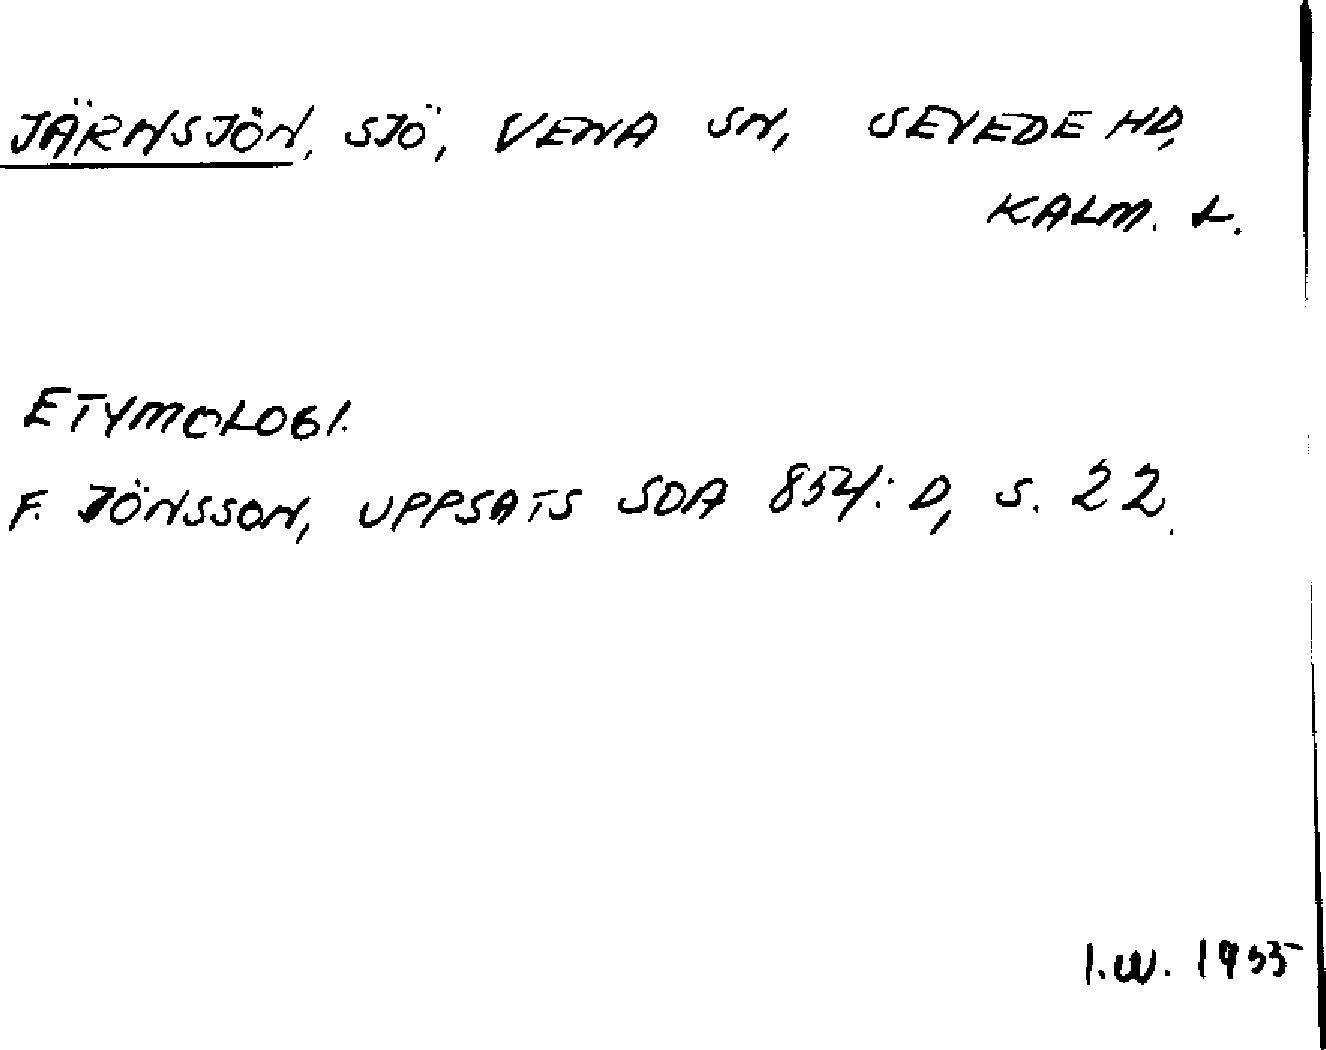 JÄRNSJÖN, SJÖ, VENA SN, SEVEDE HD,
KALM. L.
ETYMOLOGI.
F. JÖNSSON, UPPSATS SOA 854: D, S. 22.
I.W. 1955